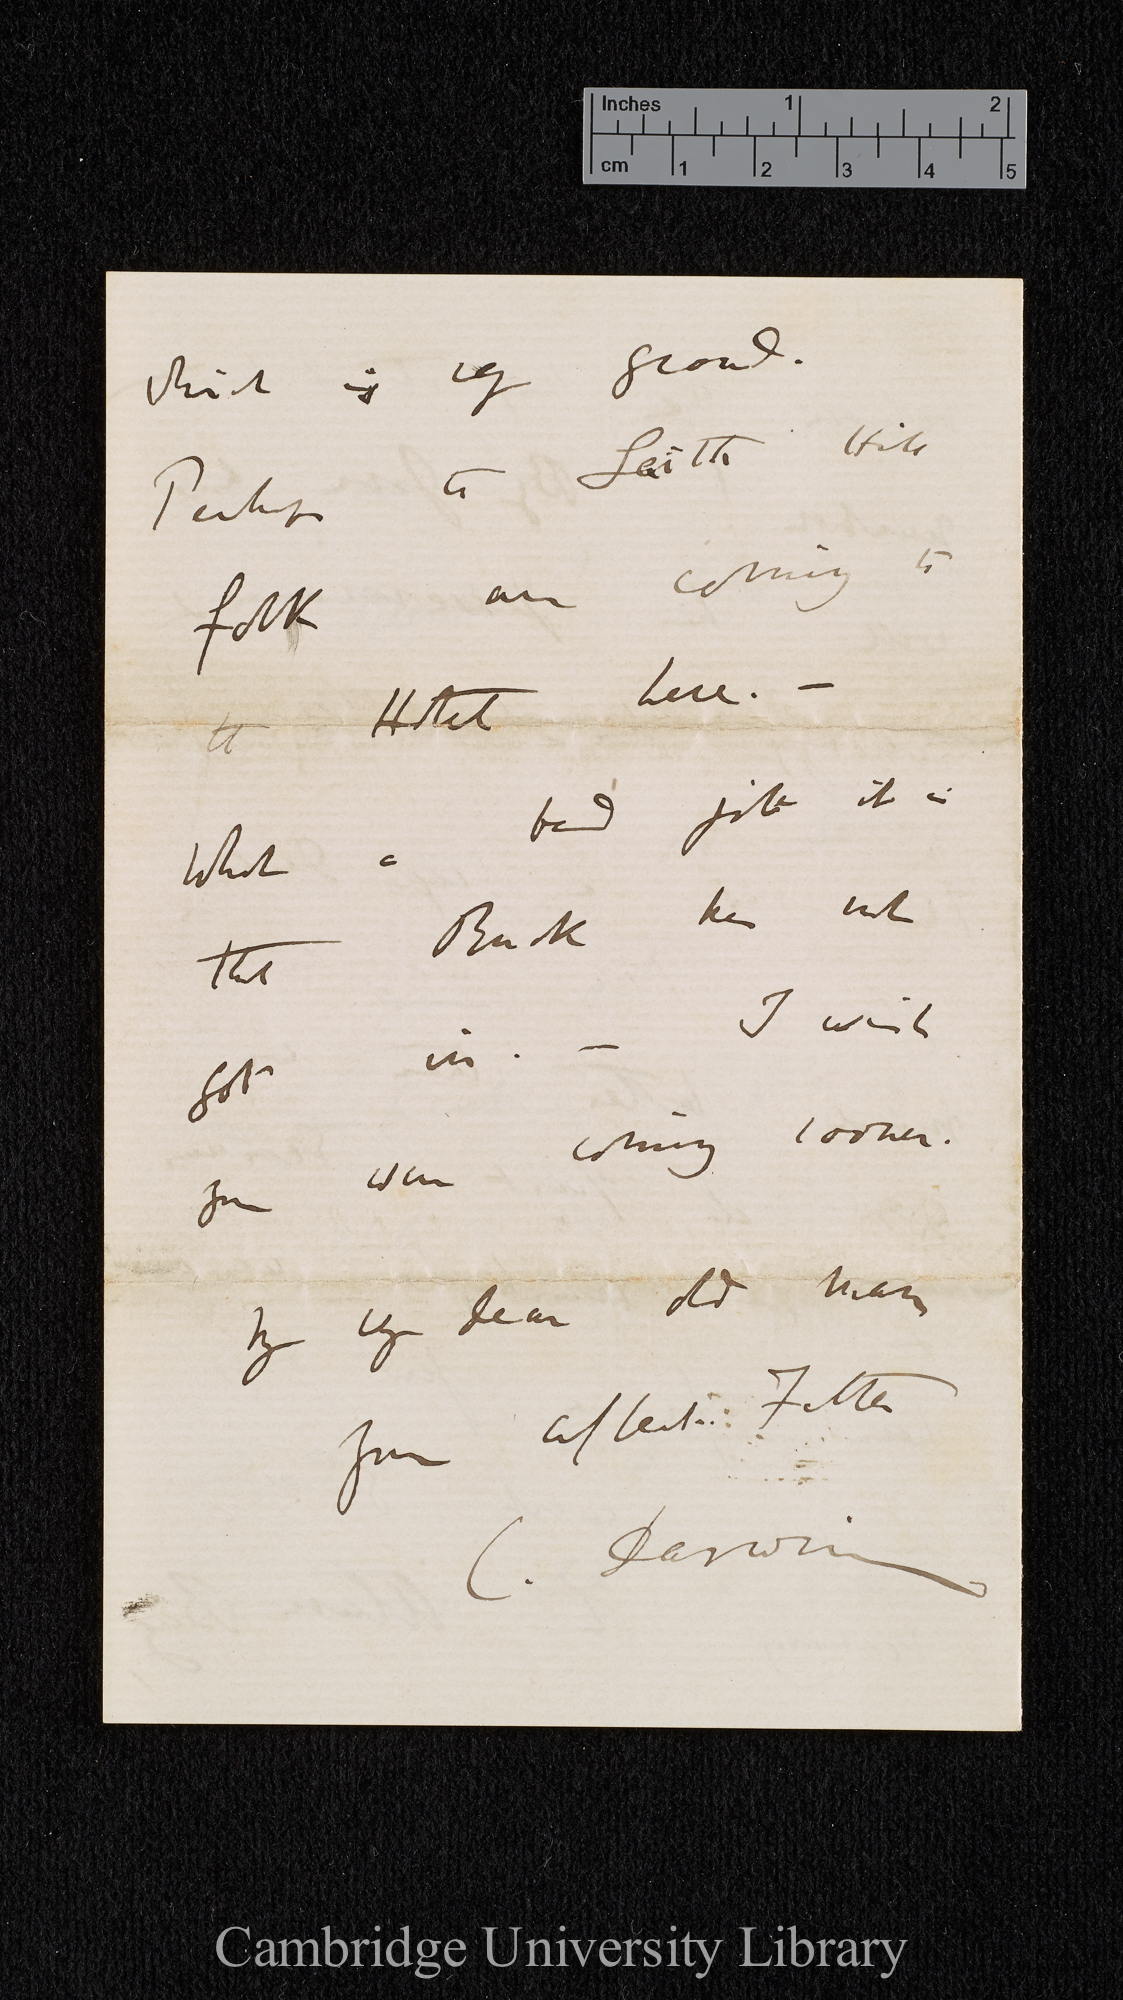 Inches 1 2
cm 1 2 3 4 5
which is my ground.
Perhaps the Leith Hill
folk are coming to
the Hotel here. —
What a bad job it is
that Buck has not
got in. — I wish
you were coming sooner.
My my dear old man
your affect: Father
C. Darwin
Cambridge University Library